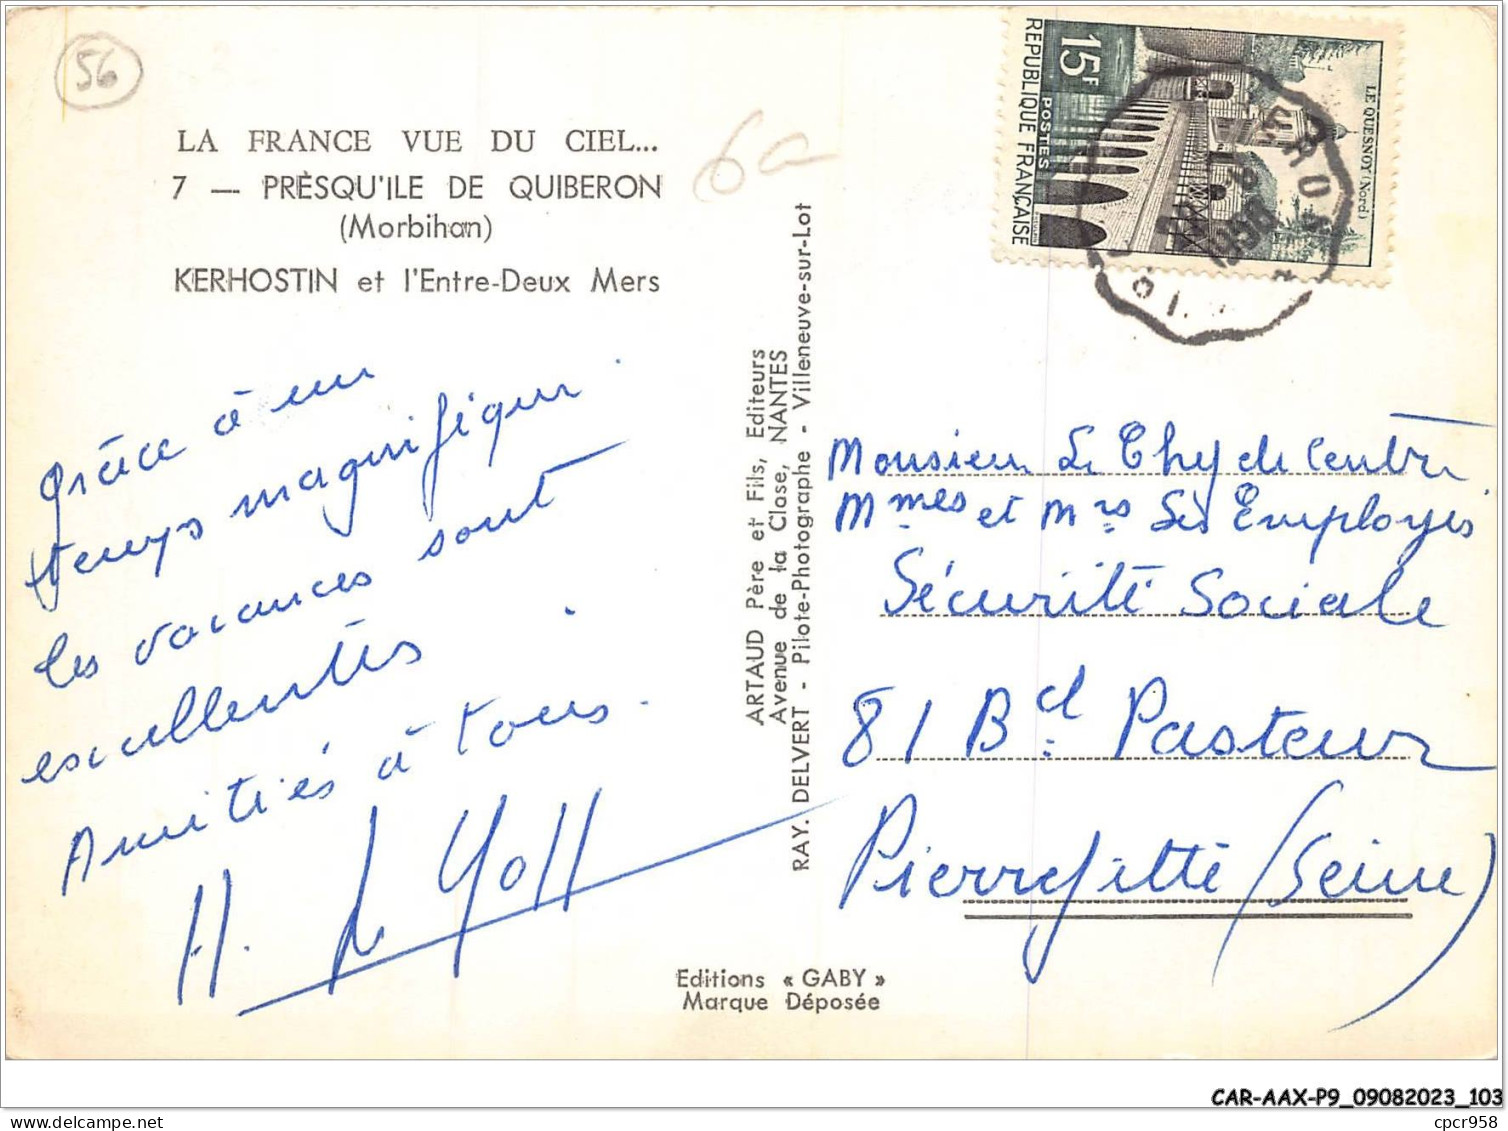 56
LA FRANCE VUE DU CIEL...
7 — PRÈSQU'ILE DE QUIBERON
(Morbihan)
KERHOSTIN et l'Entre-Deux Mers
6a
REPUBLIQUE FRANÇAISE
15F
POSTES
LE QUESNOY (Nord)
Grâce à un
temps magnifique
les vacances sont
excellentes.
Amitiés à tous.
H. Le Goff
ARTAUD Père et Fils, Editeurs
Avenue de la Close, NANTES
RAY. DELVERT - Pilote-Photographe - Villeneuve-sur-Lot
Monsieur Le Chef de Centre
Mmes et Mrs Les Employés
Sécurité Sociale
81 Bd Pasteur
Pierrefitte (Seine)
Editions « GABY »
Marque Déposée
CAR-AAX-P9_09082023_103
cpcr958